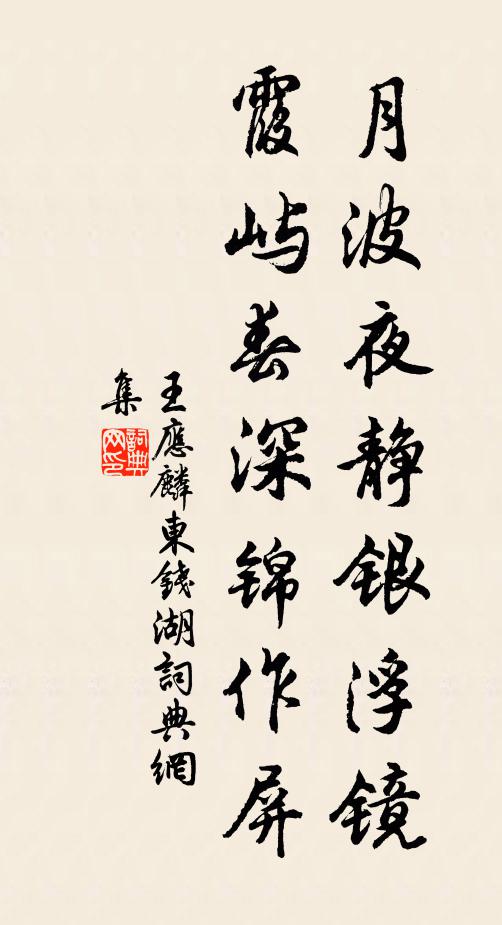 月波夜静银浮镜
霞屿春深锦作屏
王應麟東錢湖詞典網
集
詞典
网印